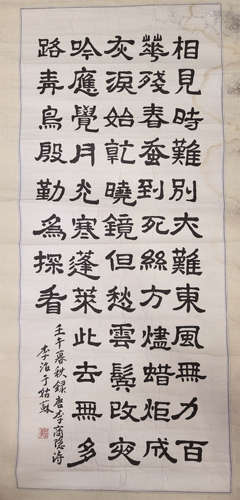 相見時難別亦難東風無力百
華殘春蚕到死絲方盡蜡炬成
灰淚始乾曉鏡但愁雲鬢改夜
吟應覺月光寒蓬萊此去無多
路青鳥殷勤為探看
壬午暮秋錄唐李商隱詩
李于姑蘇